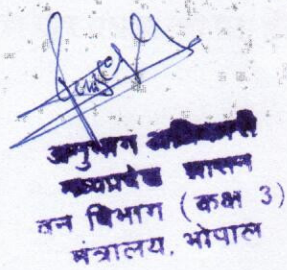 अनुभाग अधिकारी
मध्यप्रदेश शासन
वन विभाग (कक्ष 3)
मंत्रालय, भोपाल